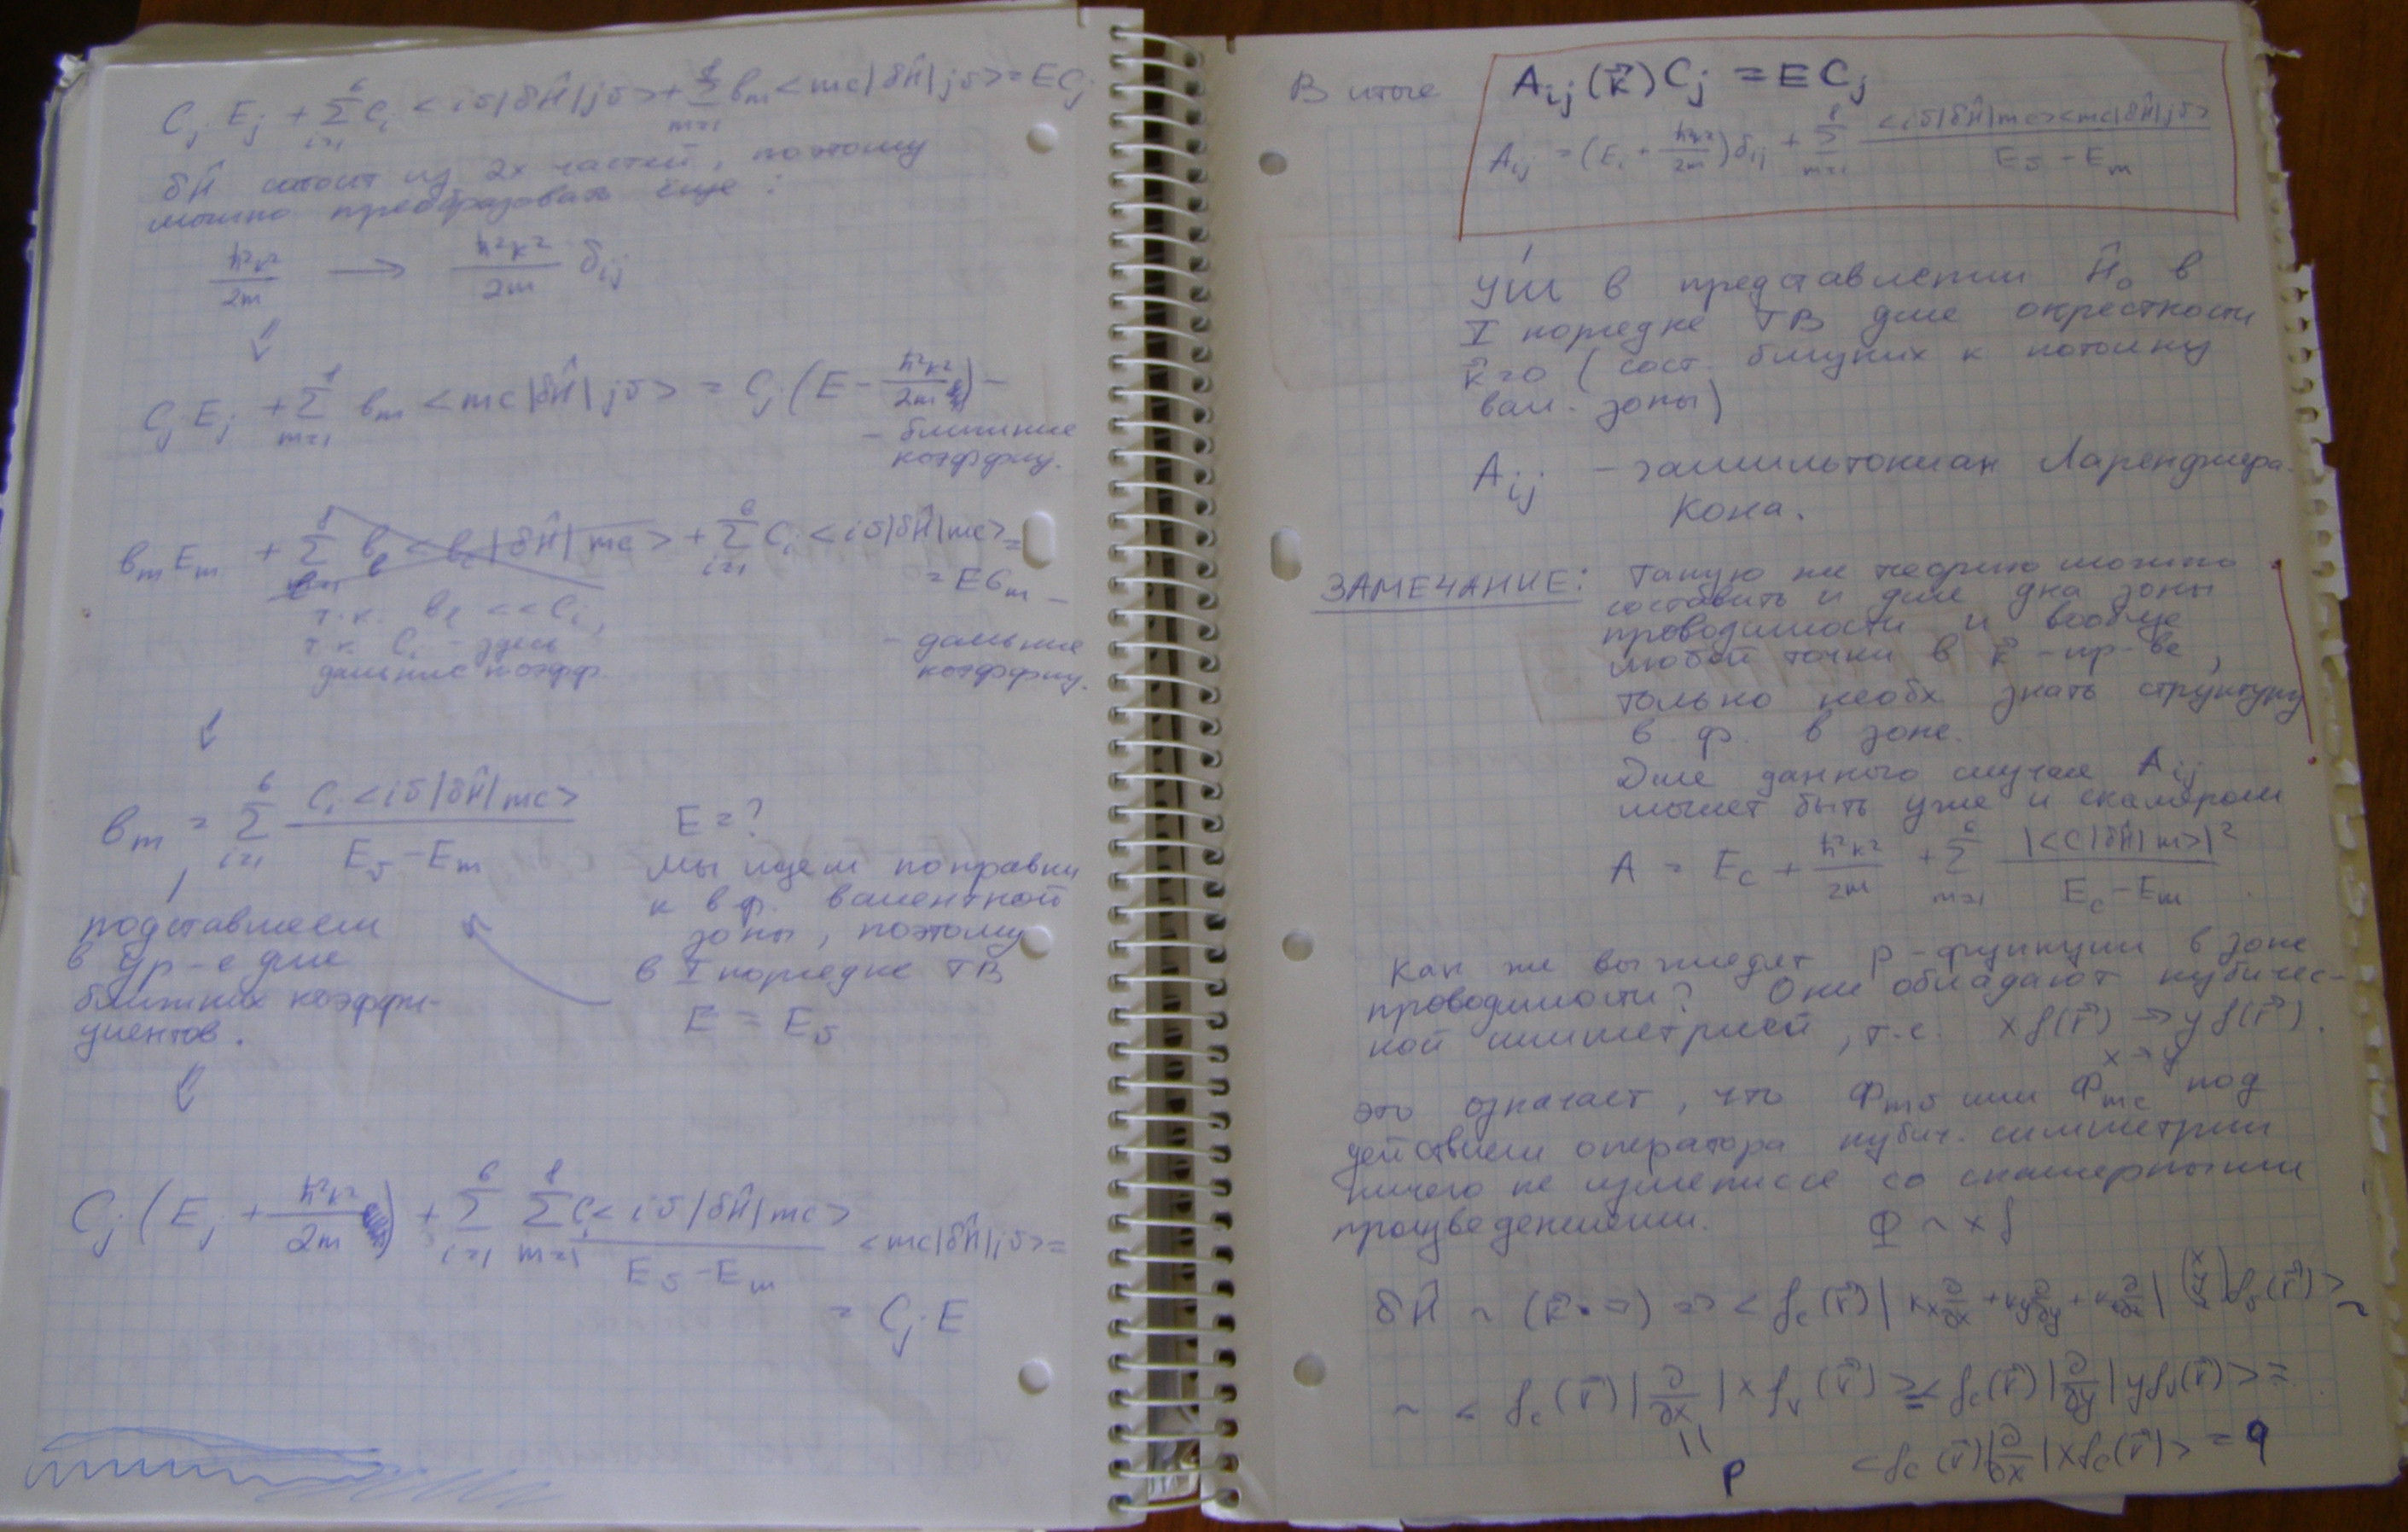 C_j E_j + Σ_{i=1}^{6} C_i <iσ|δĤ|jσ> + Σ_{m=1}^{8} b_m <mc|δĤ|jσ> = E C_j
δĤ состоит из 2х частей, поэтому
можно преобразовать еще :
ħ²k²/2m → ħ²k²/2m δ_ij
⇓
C_j E_j + Σ_{m=1}^{8} b_m <mc|δĤ|jσ> = C_j (E - ħ²k²/2m) -
- ближние
коэффиц.
b_m E_m + Σ b_l <lc|δĤ|mc> + Σ_{i=1}^{6} C_i <iσ|δĤ|mc> =
= E b_m -
т.к. b_l << C_i,
т.к. C_i - здесь
дальние коэфф.
- дальние
коэффиц.
⇓
b_m = Σ_{i=1}^{6} C_i <iσ|δĤ|mc> / (E_σ - E_m)
E = ?
мы ищем поправки
к вф. валентной
зоны, поэтому
в I порядке ТВ
E = E_σ
подставляем
в ур-е для
ближних коэффи-
циентов.
⇓
C_j (E_j + ħ²k²/2m) + Σ_{i=1}^{6} Σ_{m=1}^{8} C_i <iσ|δĤ|mc> / (E_σ - E_m) <mc|δĤ|jσ> =
= C_j E
В итоге A_ij (k⃗) C_j = E C_j
A_ij = (E_i + ħ²k²/2m) δ_ij + Σ_{m=1}^{8} <iσ|δĤ|mc><mc|δĤ|jσ> / (E_σ - E_m)
УШ в представлении Ĥ₀ в
I порядке ТВ для окрестности
k⃗=0 (сост. близких к потолку
вал. зоны)
A_ij - гамильтониан Ларенджера-
Кона.
ЗАМЕЧАНИЕ: Такую же теорию можно
составить и для дна зоны
проводимости и вообще
любой точки в k⃗ -пр-ве,
только необх. знать структуру
в.ф. в зоне.
Для данного случая A_ij
может быть уже и скаляром
A = E_c + ħ²k²/2m + Σ_{m=1}^{6} |<c|δĤ|m>|² / (E_c - E_m).
Как же выглядят p-функции в зоне
проводимости? Они обладают кубичес-
кой симметрией, т.е. x f(r⃗) → y f(r⃗).
x → y
это означает, что Φ_mσ или Φ_mc под
действием оператора кубич. симметрии
ничего не изменился со скалярными
произведениями. Φ ~ x f
δĤ ~ (k⃗·∇) => <f_c(r⃗)| k_x ∂/∂x + k_y ∂/∂y + k_z ∂/∂z | (x y z) f_v(r⃗)> ~
~ <f_c(r⃗)| ∂/∂x |x f_v(r⃗)> = <f_c(r⃗)| ∂/∂y |y f_v(r⃗)> =
||
p
<f_c(r⃗)| ∂/∂x |x f_c(r⃗)> = q